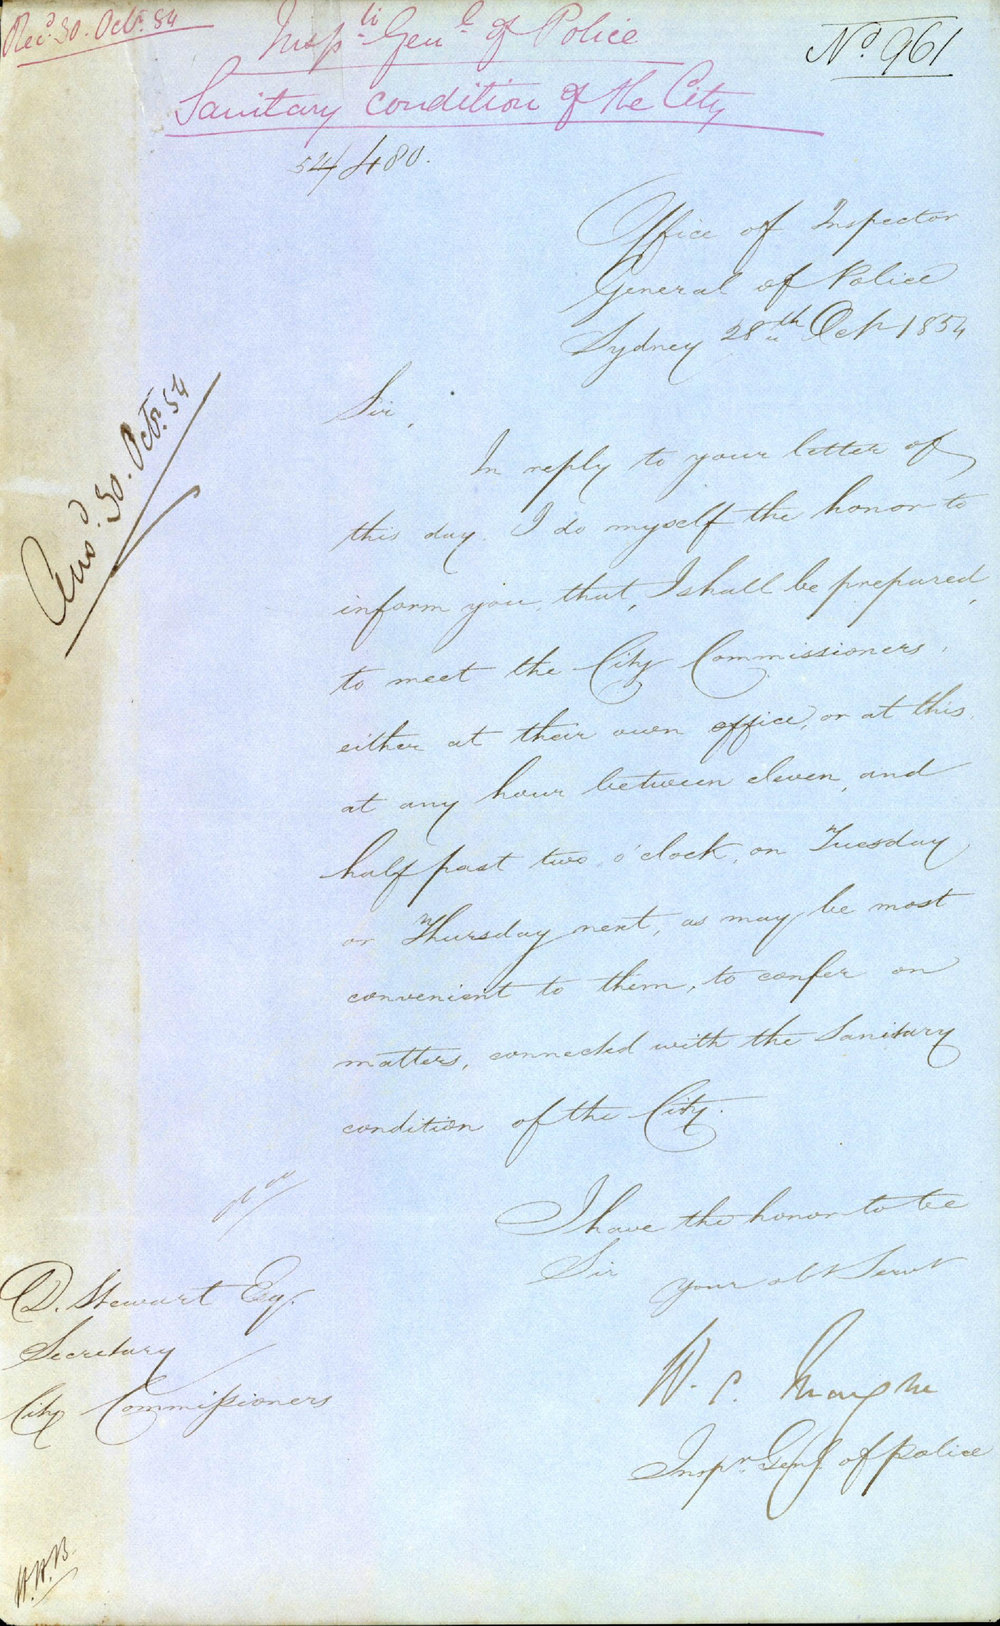 Rec.d 30. Octr. 54
Insp. Genl. of Police
No 961
Sanitary condition of the City
54/480.
Office of Inspector
General of Police
Sydney 28th Oct 1854
Ansd. 30. Octr. 54
Sir,
In reply to your letter of
this day. I do myself the honor to
inform you, that, I shall be prepared,
to meet the City Commissioners,
either at their own office, or at this
at any hour between eleven, and
half past two, o'clock, on Tuesday
or Thursday next, as may be most
convenient to them, to confer on
matters, connected with the Sanitary
condition of the City.
I have the honor to be
Sir
your obt Servt
W. C. Mayne
Inspr. Genl. of Police
D. Stewart Esq.
Secretary
City Commissioners